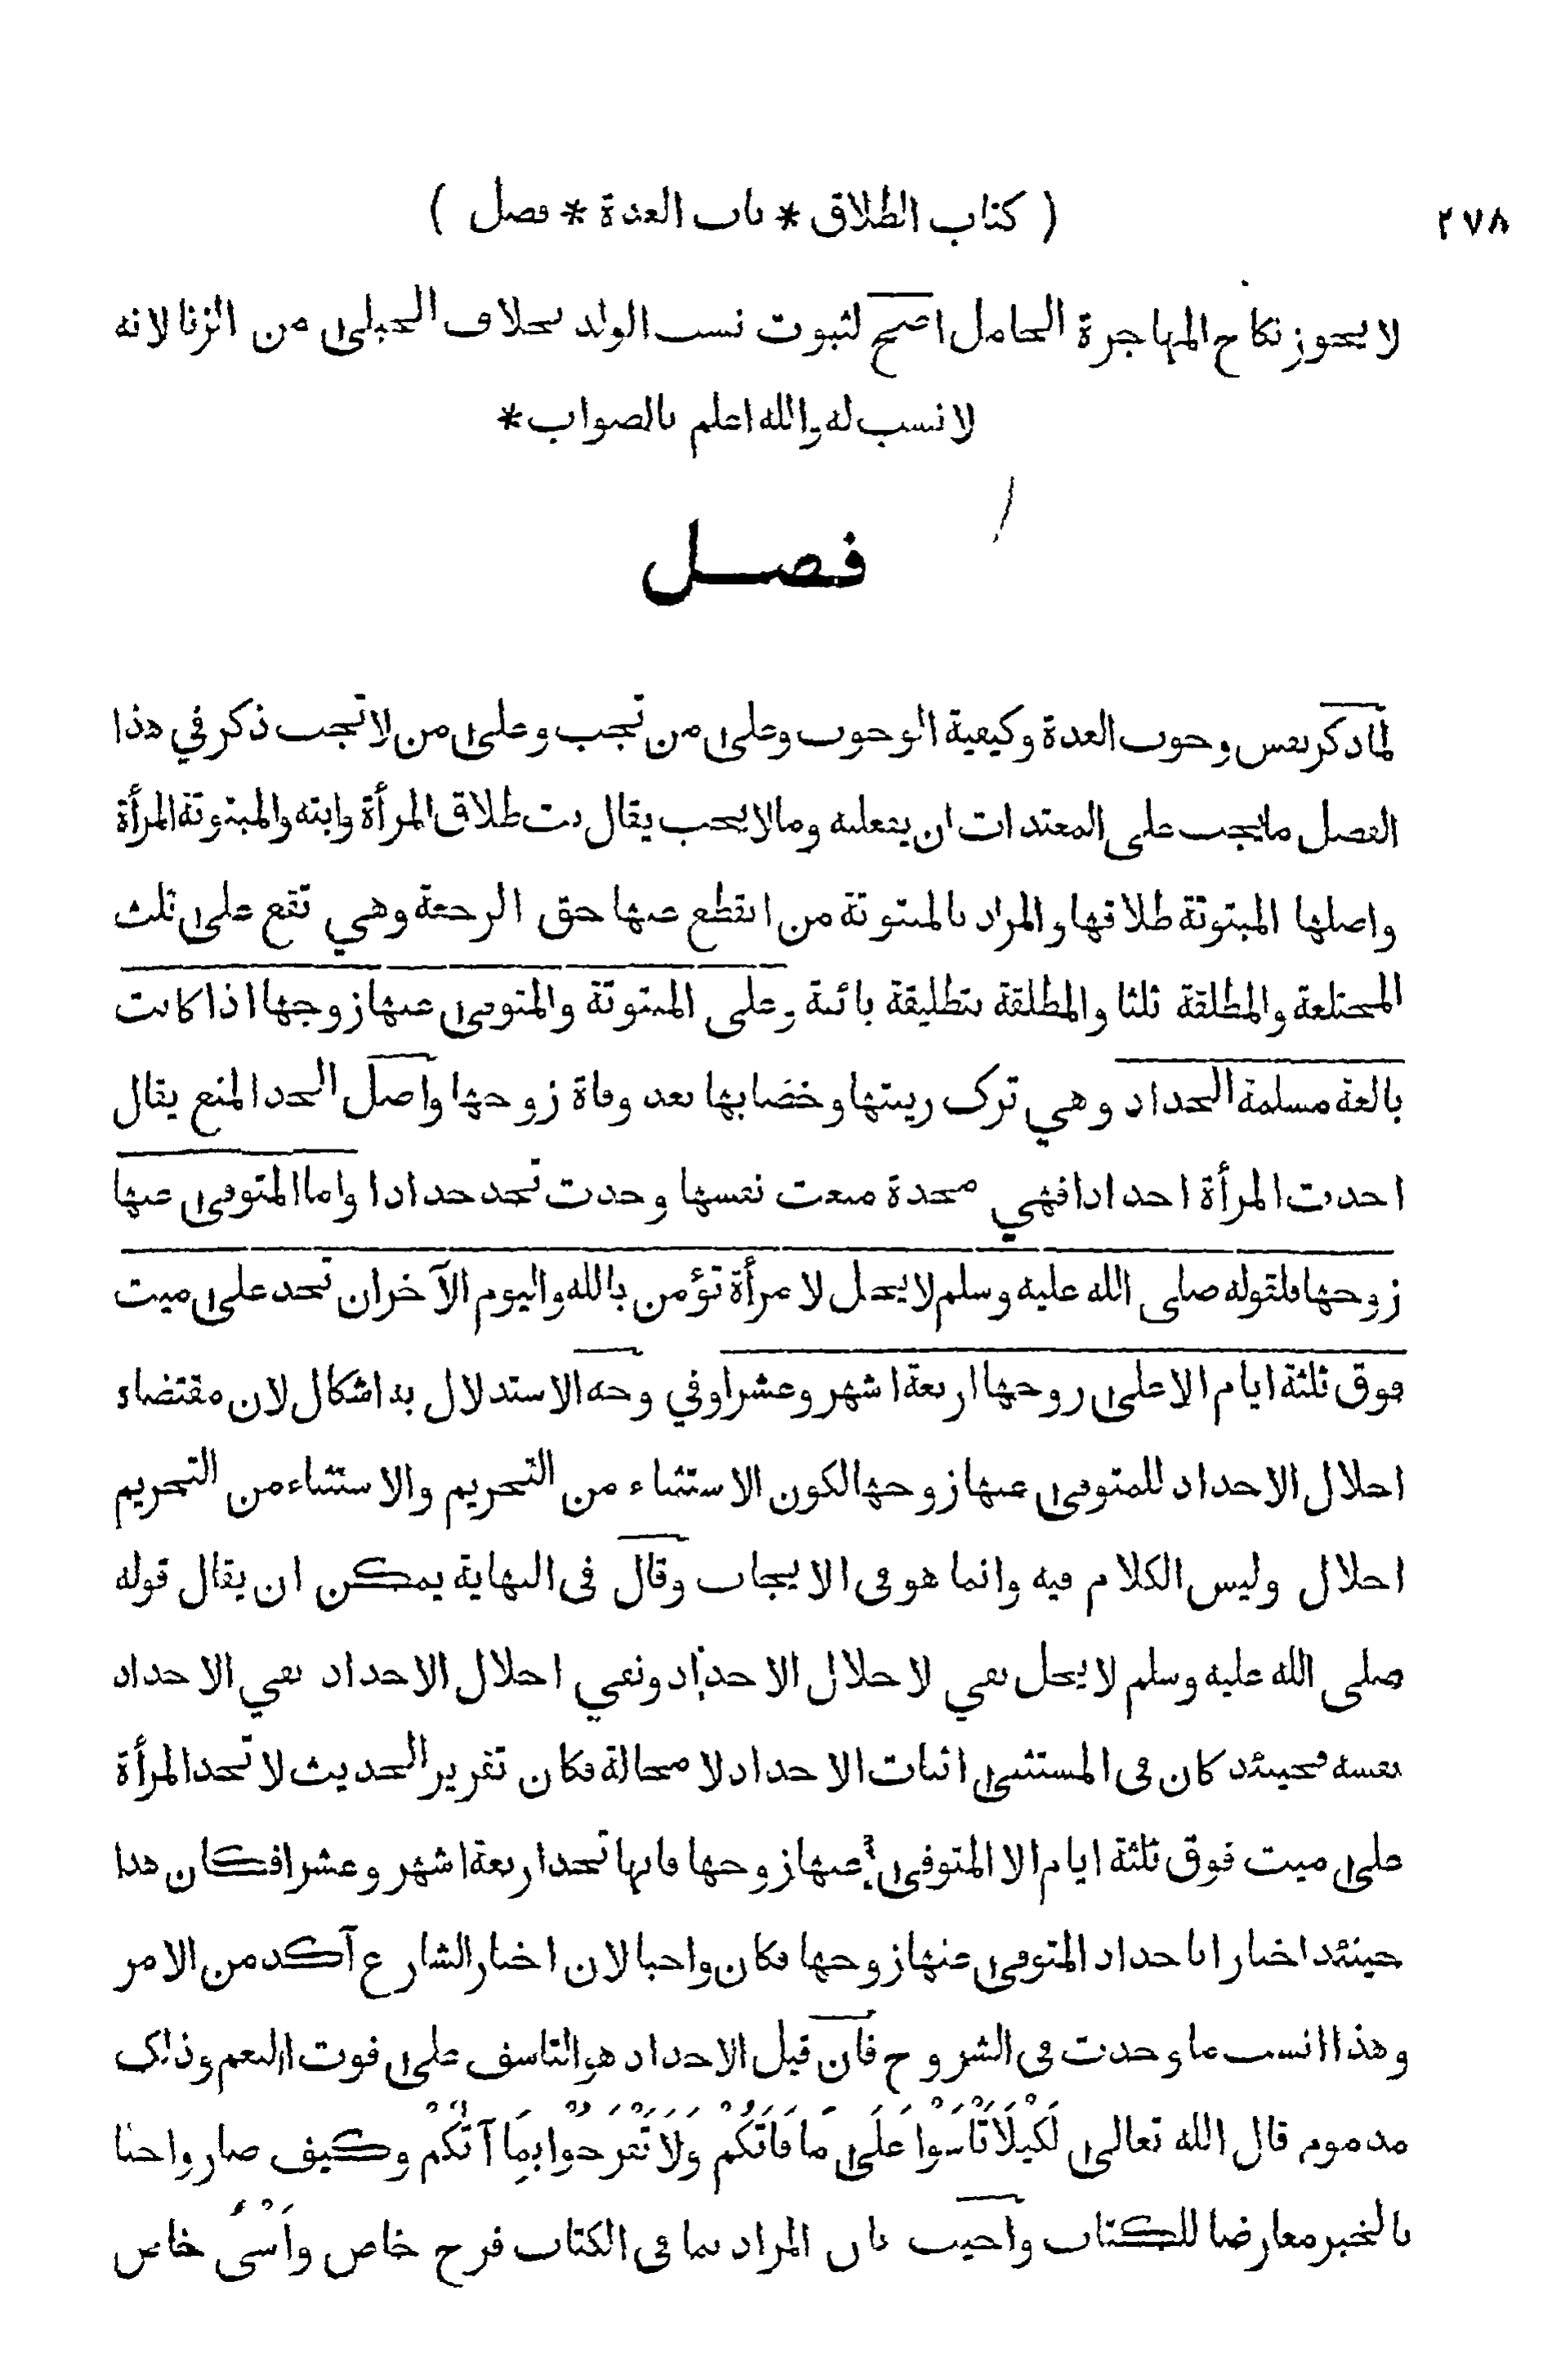 ٢٧٨
( كتاب الطلاق * باب العدة * فصل )
لا يجوز نكاح المهاجرة الحامل اصح لثبوت نسب الولد بخلاف الحبلى من الزنا لانه
لا نسب له والله اعلم بالصواب *
فصل
لما ذكر نفس وجوب العدة وكيفية الوجوب وعلى من تجب وعلى من لا تجب ذكر في هذا
الفصل ما يجب على المعتدات ان يفعلنه وما لا يجب يقال بت طلاق المرأة وابته والمبتوتة المرأة
واصلها المبتوتة طلاقها والمراد بالمبتوتة من انقطع عنها حق الرجعة وهي تقع على ثلث
المختلعة والمطلقة ثلثا والمطلقة بتطليقة بائنة وعلى المبتوتة والمتوفى عنها زوجها اذا كانت
بالغة مسلمة الحداد وهي ترك زينتها وخضابها بعد وفاة زوجها واصل الحد المنع يقال
احدت المرأة احدادا فهي محدة منعت نفسها وحدت تحد حدادا واما المتوفى عنها
زوجها فلقوله صلى الله عليه وسلم لا يحل لامرأة تؤمن بالله واليوم الآخر ان تحد على ميت
فوق ثلثة ايام الا على زوجها اربعة اشهر وعشرا وفي وجه الاستدلال به اشكال لان مقتضاه
احلال الاحداد للمتوفى عنها زوجها لكون الاستثناء من التحريم والاستثناء من التحريم
احلال وليس الكلام فيه وانما هو في الايجاب وقال في النهاية يمكن ان يقال قوله
صلى الله عليه وسلم لا يحل نفي لاحلال الاحداد ونفي احلال الاحداد نفي الاحداد
نفسه فحينئذ كان في المستثنى اثبات الاحداد لا محالة فكان تقرير الحديث لا تحد المرأة
على ميت فوق ثلثة ايام الا المتوفى عنها زوجها فانها تحد اربعة اشهر وعشرا فكان هذا
حينئذ اخبارا باحداد المتوفى عنها زوجها فكان واجبا لان اخبار الشارع آكد من الامر
وهذا انسب ما وجدت في الشروح فان قيل الاحداد هو التاسف على فوت النعم وذلك
مذموم قال الله تعالى لِكَيْلَا تَأْسَوْا عَلَى مَا فَاتَكُمْ وَلَا تَفْرَحُوْا بِمَا آتٰكُمْ وكيف صار واجبا
بالخبر معارضا للكتاب واجيب بان المراد بما في الكتاب فرح خاص واَسْىً خاص